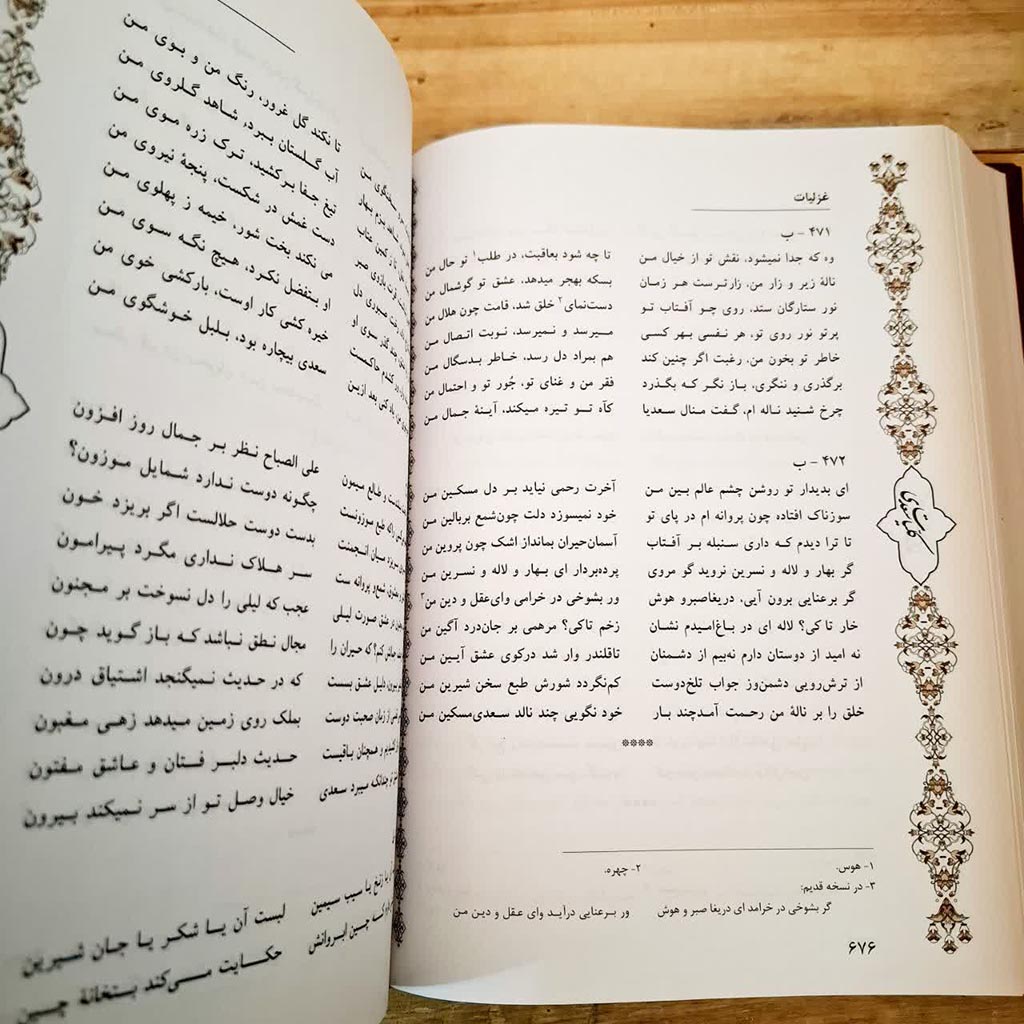 غزلیات
۴۷۱ - ب
وه که جدا نمیشود، نقش تو از خیال من تا چه شود بعاقبت، در طلب۱ تو حال من
نالهٔ زیر و زار من، زارترست هر زمان بسکه بهجر میدهد، عشق تو گوشمال من
نور ستارگان ستد، روی چو آفتاب تو دست‌نمای۲ خلق شد، قامت چون هلال من
پرتو نور روی تو، هر نفسی بهر کسی میرسد و نمیرسد، نوبت اتصال من
خاطر تو بخون من، رغبت اگر چنین کند هم بمراد دل رسد، خاطر بدسگال من
برگذری و ننگری، باز نگر که بگذرد فقر من و غنای تو، جُور تو و احتمال من
چرخ شنید ناله ام، گفت منال سعدیا کآه تو تیره میکند، آینهٔ جمال من
۴۷۲ - ب
ای بدیدار تو روشن چشم عالم بین من آخرت رحمی نیاید بر دل مسکین من
سوزناک افتاده چون پروانه ام در پای تو خود نمیسوزد دلت چون‌شمع بربالین من
تا ترا دیدم که داری سنبله بر آفتاب آسمان‌حیران بمانداز اشک چون پروین من
گر بهار و لاله و نسرین نروید گو مروی پرده‌بردار ای بهار و لاله و نسرین من
گر برعنایی برون آیی، دریغاصبرو هوش ور بشوخی در خرامی وای‌عقل و دین من۳
خار تا کی؟ لاله ای در باغ‌امیدم نشان زخم تاکی؟ مرهمی بر جان‌درد آگین من
نه امید از دوستان دارم نه‌بیم از دشمنان تاقلندر وار شد درکوی عشق آیین من
از ترش‌رویی دشمن‌وز جواب تلخ‌دوست کم‌نگردد شورش طبع سخن شیرین من
خلق را بر نالهٔ من رحمت آمدچند بار خود نگویی چند نالد سعدی‌مسکین من
****
۱- هوس. ۲- چهره.
۳- در نسخه قدیم:
گر بشوخی در خرامد ای دریغا صبر و هوش ور برعنایی درآید وای عقل و دین من
۶۷۶
کلیات سعدی
تا نکند گل غرور، رنگ من و بوی من
آب گلستان ببرد، شاهد گلروی من
تیغ جفا برکشید، ترک زره موی من
دست غمش در شکست، پنجهٔ نیروی من
می نکند بخت شور، خیمه ز پهلوی من
او بتفضل نکرد، هیچ نگه سوی من
خیره کشی کار اوست، بارکشی خوی من
سعدی بیچاره بود، بلبل خوشگوی من
علی الصباح نظر بر جمال روز افزون
چگونه دوست ندارد شمایل موزون؟
بدست دوست حلالست اگر بریزد خون
سر هلاک نداری مگرد پیرامون
عجب که لیلی را دل نسوخت بر مجنون
مجال نطق نباشد که باز گوید چون
که در حدیث نمیگنجد اشتیاق درون
بملک روی زمین میدهد زهی مغبون
حدیث دلبر فتان و عاشق مفتون
خیال وصل تو از سر نمیکند بیرون
لبست آن یا شکر یا جان شیرین
حکایت می‌کند بتخانهٔ چین